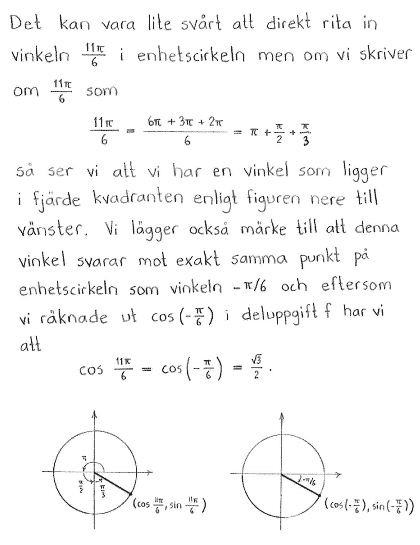 Det kan vara lite svårt att direkt rita in
vinkeln 11π/6 i enhetscirkeln men om vi skriver
om 11π/6 som
11π/6 = (6π + 3π + 2π)/6 = π + π/2 + π/3
så ser vi att vi har en vinkel som ligger
i fjärde kvadranten enligt figuren nere till
vänster. Vi lägger också märke till att denna
vinkel svarar mot exakt samma punkt på
enhetscirkeln som vinkeln -π/6 och eftersom
vi räknade ut cos(-π/6) i deluppgift f har vi
att
cos 11π/6 = cos(-π/6) = √3/2 .
π
π/2 π/3
(cos 11π/6, sin 11π/6)
-π/6
(cos(-π/6), sin(-π/6))